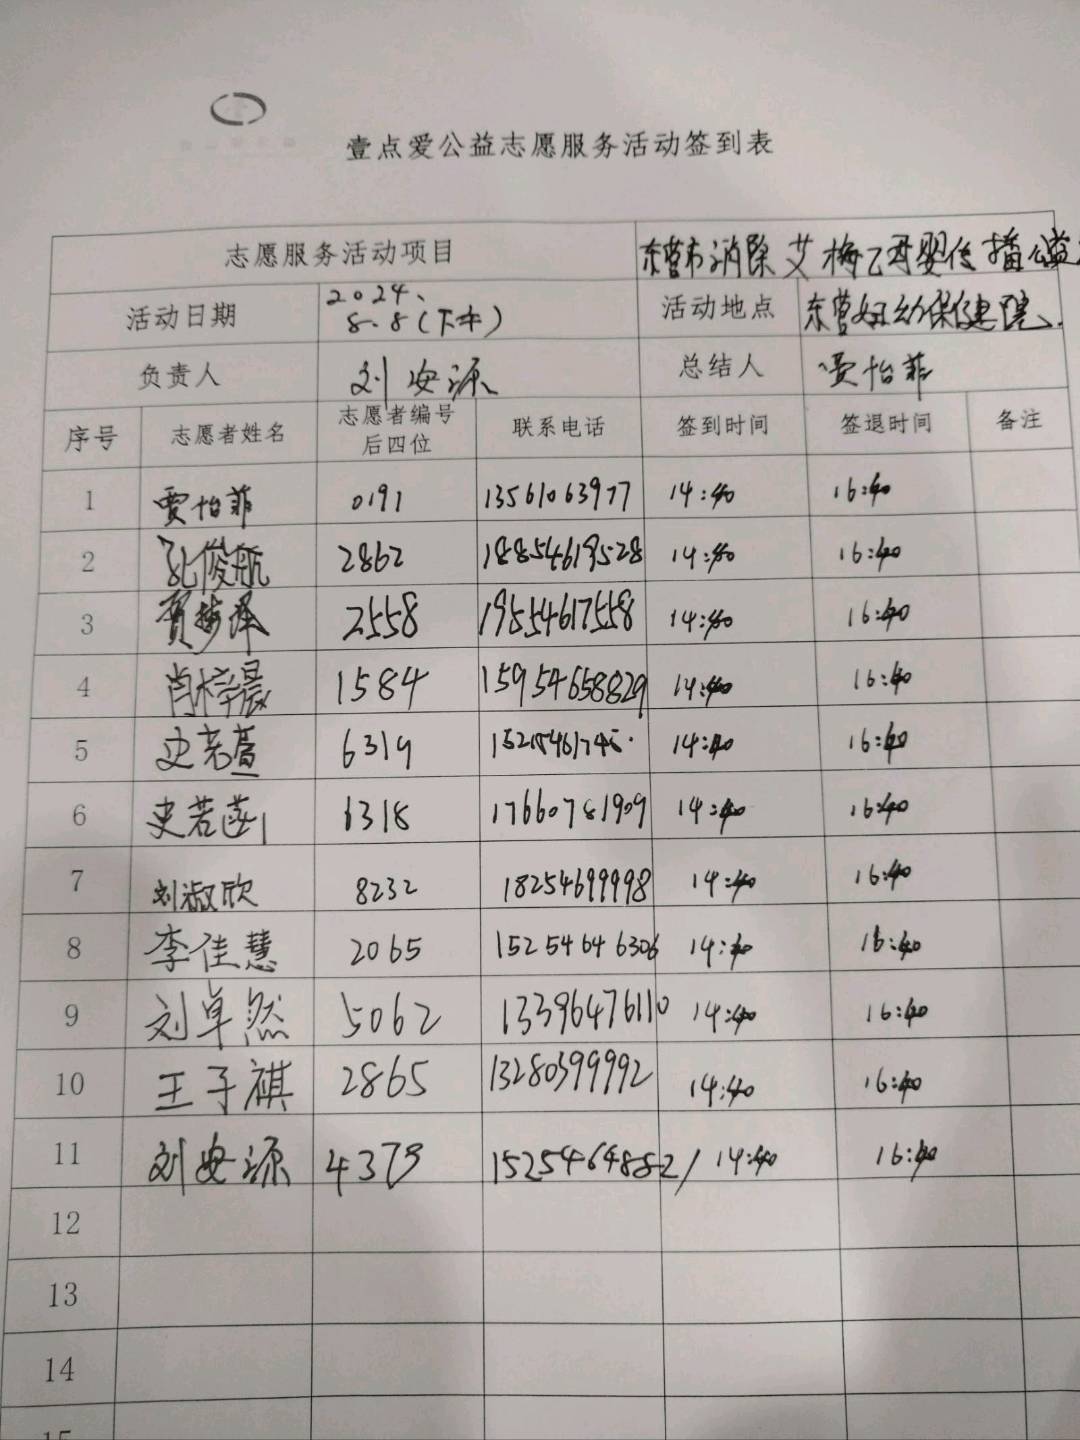 壹点爱公益志愿服务活动签到表
志愿服务活动项目 东营市消除艾梅乙母婴传播公益
活动日期 2024、8.8(下午) 活动地点 东营妇幼保健院
负责人 刘安源 总结人 贾怡菲
序号 志愿者姓名 志愿者编号后四位 联系电话 签到时间 签退时间 备注
1 贾怡菲 0191 13561063977 14:40 16:40
2 孔俊航 2862 18854619528 14:40 16:40
3 2558 19554617558 14:40 16:40
4 肖梓晨 1584 15954658829 14:40 16:40
5 史若萱 6319 14:40 16:40
6 史若菡 6318 17660781909 14:40 16:40
7 刘淑欣 8232 18254699998 14:40 16:40
8 李佳慧 2065 15254646306 14:40 16:40
9 刘卓然 5062 13396476110 14:40 16:40
10 王子祺 2865 13280399992 14:40 16:40
11 刘安源 4379 15254648821 14:40 16:40
12
13
14
15